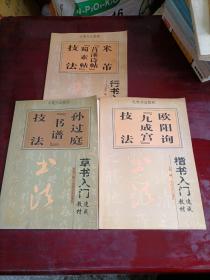 米芾
『苕溪诗帖』
『蜀素帖』
技法
行书
孙过庭
『书谱』
技法
书法
草书入门
速成教材
欧阳询
『九成宫』
技法
书法
楷书入门
速成教材